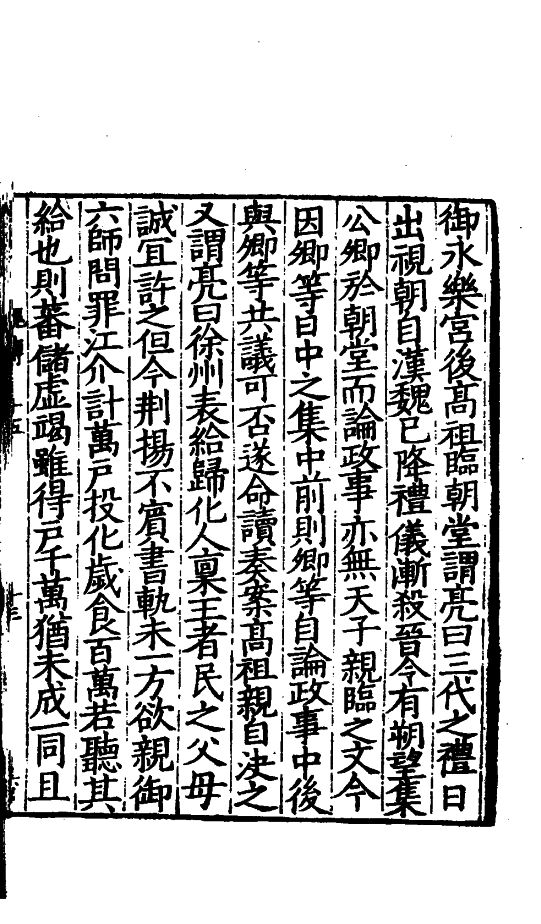 御永樂宮後高祖臨朝堂謂亮曰三代之禮日
出視朝自漢魏已降禮儀漸殺晉令有朔望集
公卿於朝堂而論政事亦無天子親臨之文今
因卿等日中之集中前則卿等自論政事中後
與卿等共議可否遂命讀奏案高祖親自決之
又謂亮曰徐州表給歸化人稟王者民之父母
誠宜許之但今荆揚不賓書軌未一方欲親御
六師問罪江介計萬戶投化歲食百萬若聽其
給也則蕃儲虛竭雖得戶千萬猶未成一同且